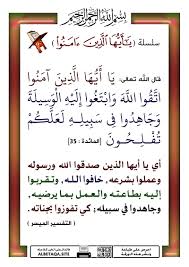 بسم الله الرحمن الرحيم
سلسلة ﴿يَا أَيُّهَا الَّذِينَ ءَامَنُوا﴾
قال الله تعالى: يَا أَيُّهَا الَّذِينَ آمَنُوا
اتَّقُوا اللَّهَ وَابْتَغُوا إِلَيْهِ الْوَسِيلَةَ
وَجَاهِدُوا فِي سَبِيلِهِ لَعَلَّكُمْ
تُفْلِحُونَ [المائدة : 35]
أي يا أيها الذين صدقوا الله ورسوله
وعملوا بشرعه، خافوا الله، وتقربوا
إليه بطاعته والعمل بما يرضيه،
وجاهدوا في سبيله; كي تفوزوا بجناته.
( التفسير الميسر )
ALBETAQA.SITE